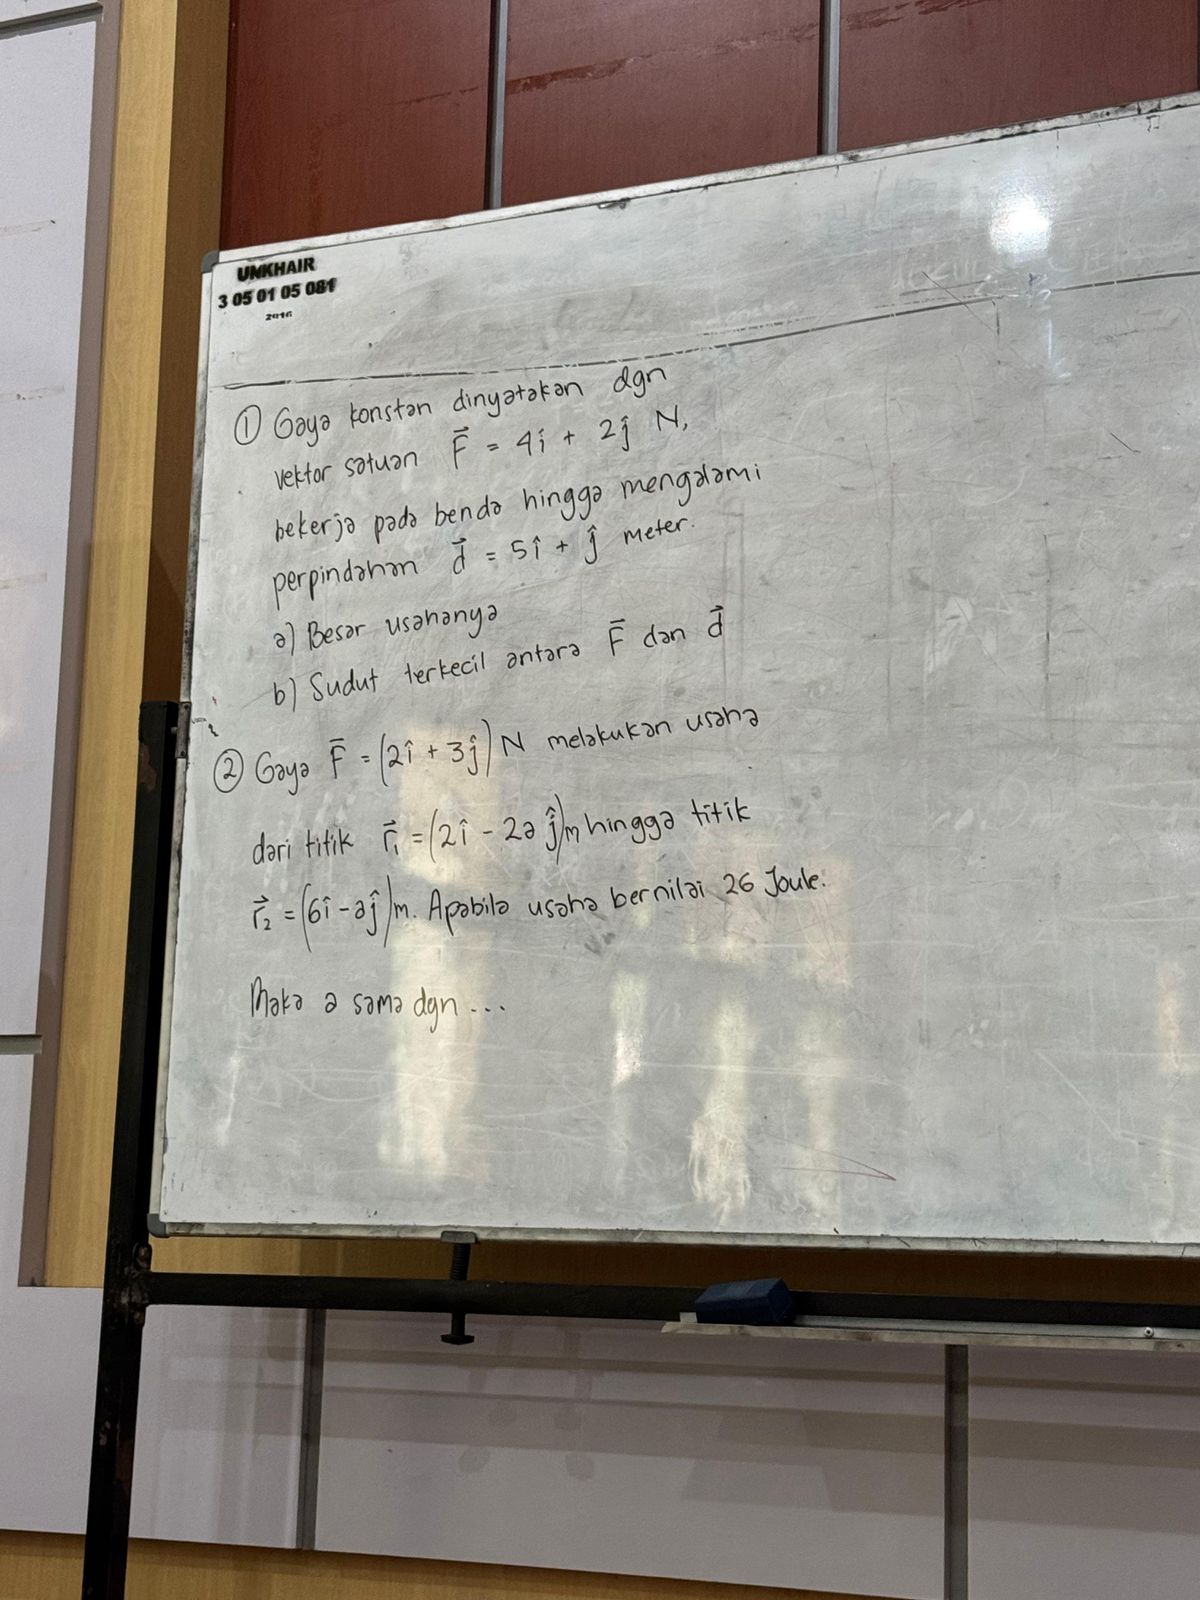 UNKHAIR
3 05 01 05 081
2016
① Gaya konstan dinyatakan dgn
vektor satuan F⃗ = 4î + 2ĵ N,
bekerja pada benda hingga mengalami
perpindahan d⃗ = 5î + ĵ meter.
a) Besar usahanya
b) Sudut terkecil antara F⃗ dan d⃗
② Gaya F⃗ = (2î + 3ĵ) N melakukan usaha
dari titik r⃗₁ = (2î - 2a ĵ)m hingga titik
r⃗₂ = (6î - aĵ)m. Apabila usaha bernilai 26 Joule.
Maka a sama dgn ...